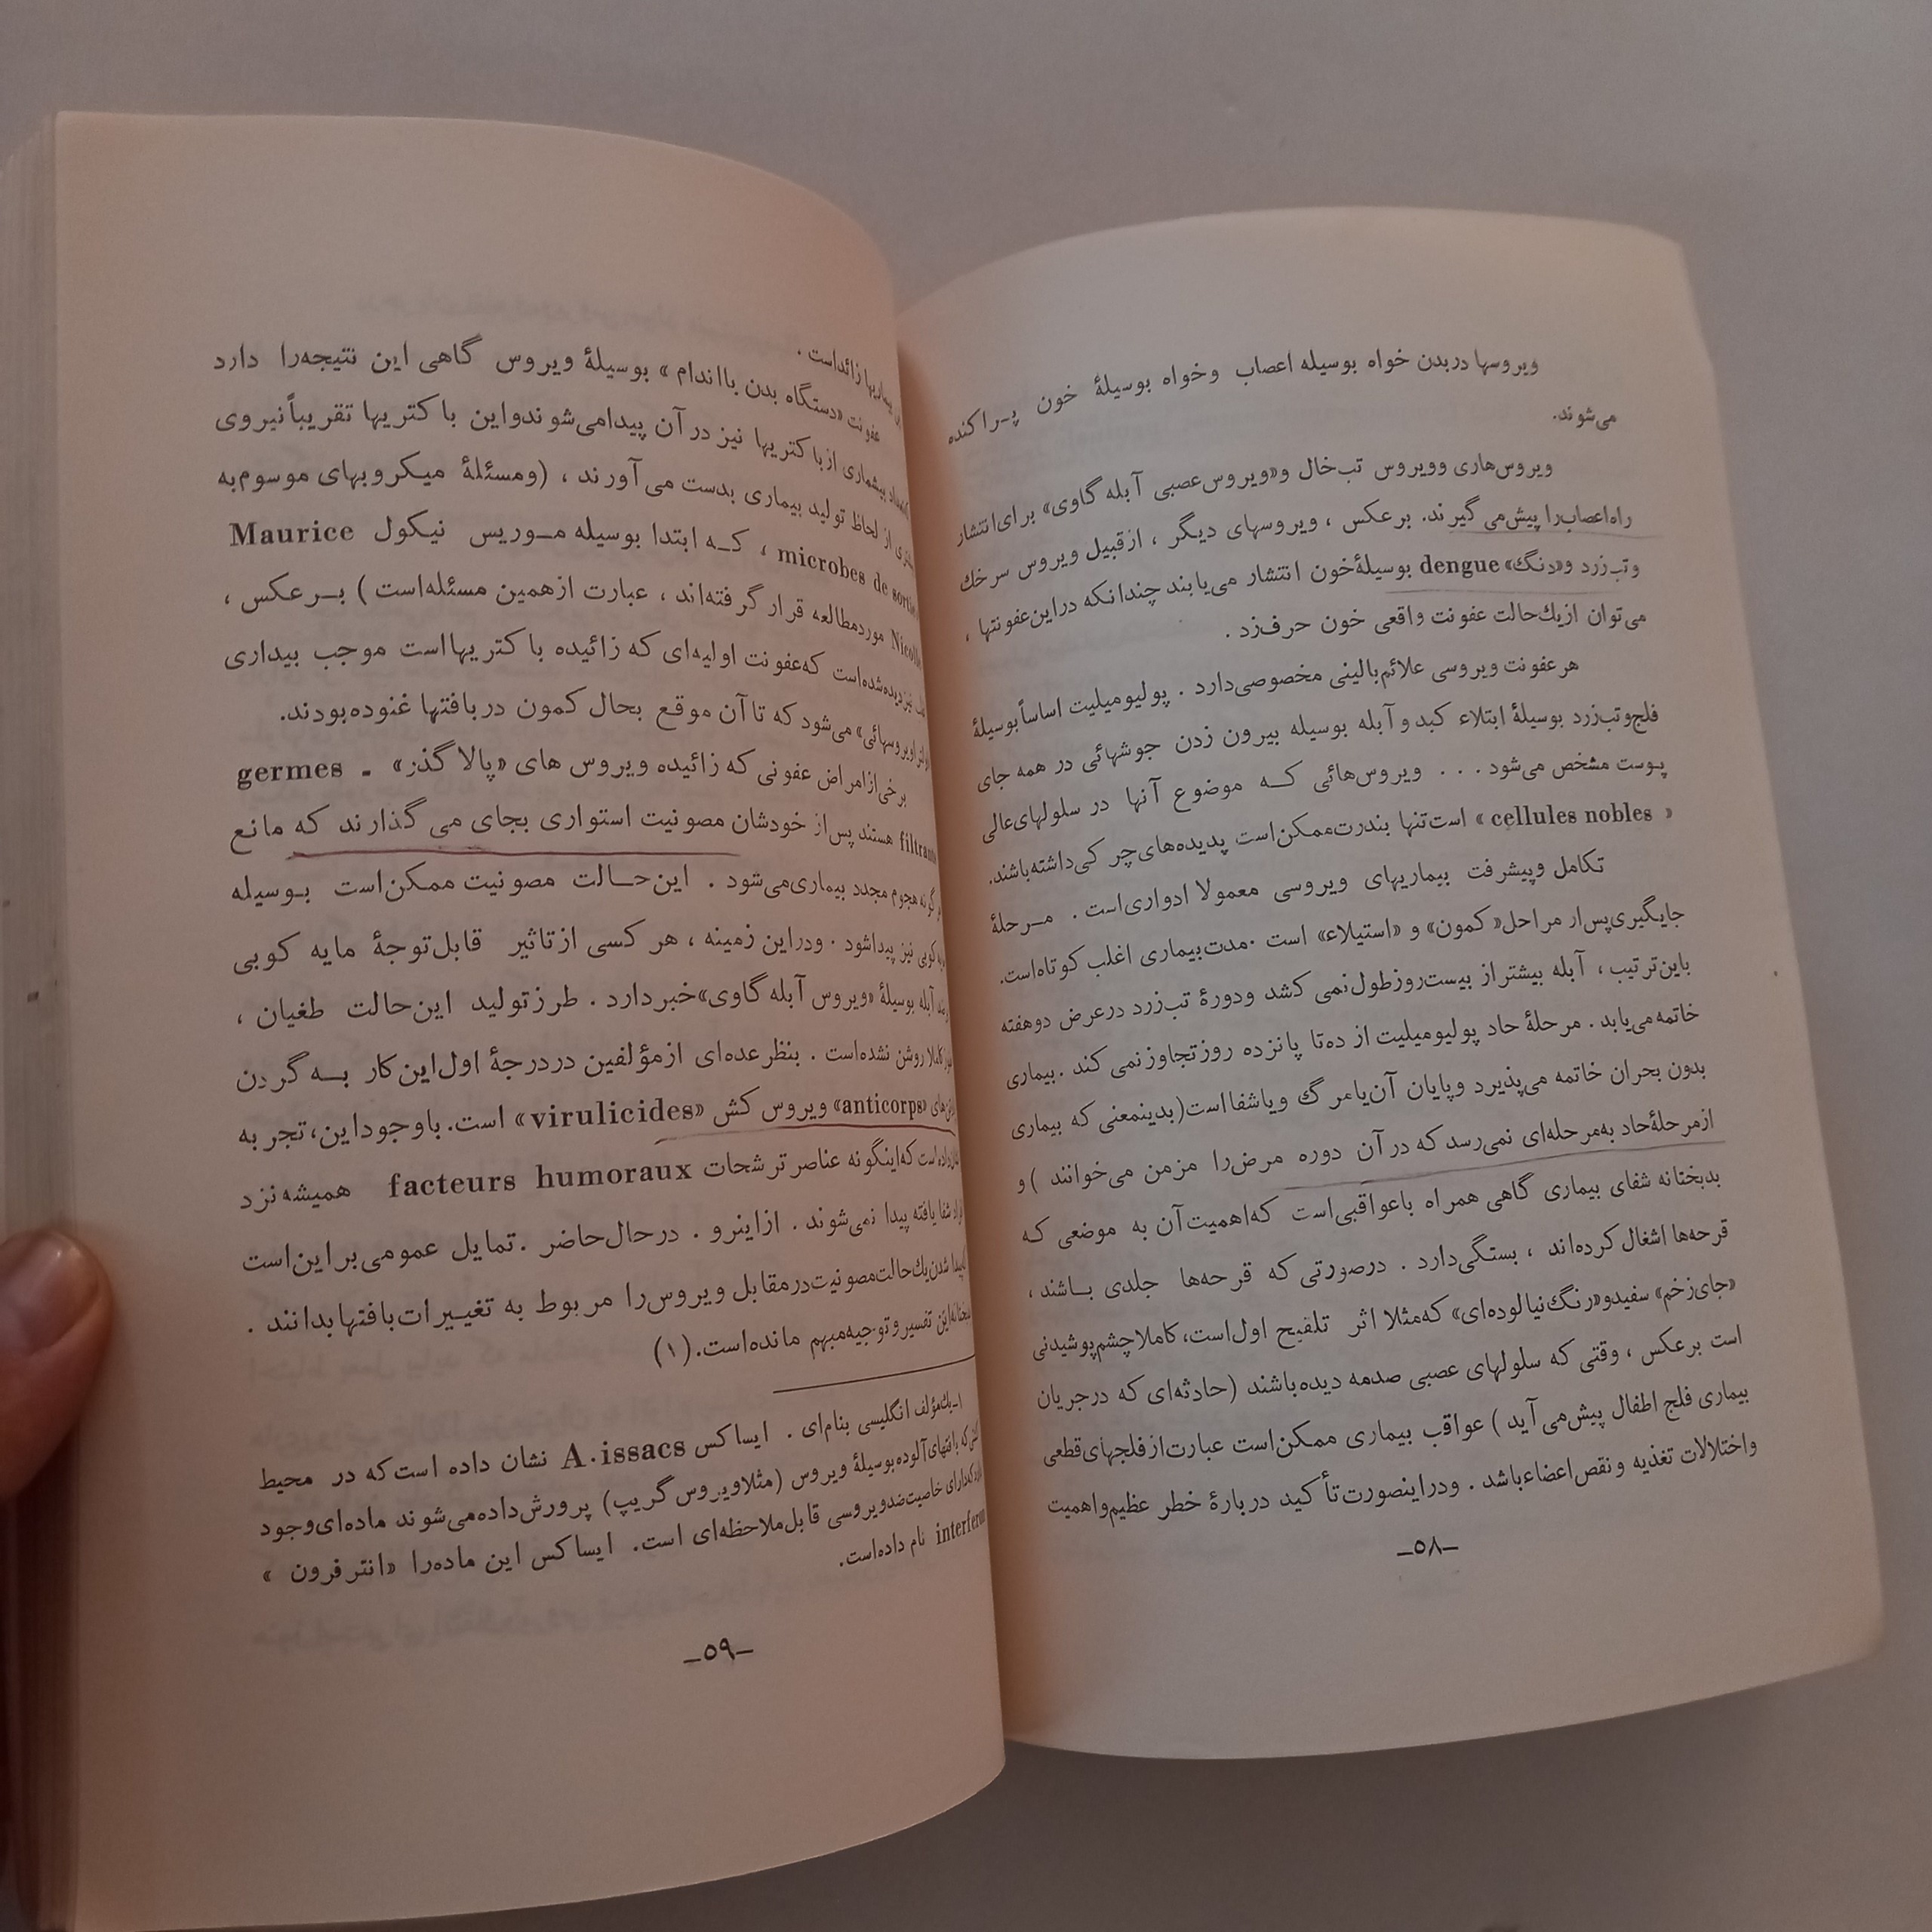 ویروسها دربدن خواه بوسیله اعصاب وخواه بوسیلهٔ خون پـراکنده
می‌شوند.
ویروس‌هاری وویروس تب‌خال و«ویروس‌عصبی آبله گاوی» برای‌انتشار
راه‌اعصاب‌را پیش‌می گیرند. برعکس ، ویروسهای دیگر ، ازقبیل ویروس سرخک
وتب‌زرد و«دنگ» dengue بوسیلهٔ‌خون انتشار می‌یابند چندانکه دراین‌عفونتها ،
می‌توان ازیک‌حالت عفونت واقعی خون حرف‌زد .
هرعفونت ویروسی علائم‌بالینی مخصوصی‌دارد . پولیومیلیت اساساً بوسیلهٔ
فلج‌وتب‌زرد بوسیلهٔ ابتلاء کبد وآبله بوسیله بیرون زدن جوشهائی در همه جای
پوست مشخص می‌شود . . . ویروس‌هائی کــه موضوع آنها در سلولهای‌عالی
« cellules nobles » است‌تنها بندرت‌ممکن‌است پدیده‌های‌چرکی‌داشته‌باشند.
تکامل وپیشرفت بیماریهای ویروسی معمولا ادواری‌است . مـرحلهٔ
جایگیری‌پس‌ار مراحل«کمون» و «استیلاء» است .مدت‌بیماری اغلب کوتاه‌است.
باین‌ترتیب ، آبله بیشتراز بیست‌روزطول‌نمی کشد ودورهٔ تب‌زرد درعرض دوهفته
خاتمه‌می‌یابد . مرحلهٔ حاد پولیومیلیت از ده‌تا پانزده روزتجاوزنمی کند .بیماری
بدون بحران خاتمه می‌پذیرد وپایان آن‌یامرگ ویاشفااست(بدینمعنی که بیماری
ازمرحلهٔ‌حاد به‌مرحله‌ای نمی‌رسد که درآن دوره مرض‌را مزمن می‌خوانند ) و
بدبختانه شفای بیماری گاهی همراه باعواقبی‌است که‌اهمیت‌آن به موضعی کـه
قرحه‌ها اشغال کرده‌اند ، بستگی‌دارد . درصورتی که قرحه‌ها جلدی بــاشند ،
«جای‌زخم» سفیدو«رنگ‌نیالوده‌ای» که‌مثلا اثر تلقیح اول‌است، کاملاچشم‌پوشیدنی
است برعکس ، وقتی که سلولهای عصبی صدمه دیده‌باشند (حادثه‌ای که درجریان
بیماری فلج اطفال پیش‌می‌آید ) عواقب بیماری ممکن‌است عبارت‌ازفلجهای‌قطعی
واختلالات تغذیه ونقص‌اعضاءباشد . ودراینصورت‌تأکید دربارهٔ خطر عظیم‌واهمیت
ـ۵۸ـ
بیماریها زائداست .
عفونت «دستگاه بدن یااندام » بوسیلهٔ ویروس گاهی این نتیجه‌را دارد
بیشماری ازباکتریها نیز درآن پیدامی‌شوندواین باکتریها تقریباً نیروی
از لحاظ تولید بیماری بدست می‌آورند ، (ومسئلهٔ میکروبهای موسوم‌به
microbes de sortie ، کــه ابتدا بوسیله مــوریس نیکول Maurice
Nicolle موردمطالعه قرار گرفته‌اند ، عبارت ازهمین مسئله‌است ) بــرعکس ،
نیزدیده‌شده‌است که‌عفونت اولیه‌ای که زائیده باکتریهااست موجب بیداری
ویروسهائی» می‌شود که تاآن موقع بحال کمون دربافتها غنوده‌بودند.
برخی‌ازامراض عفونی که زائیده ویروس های «پالا گذر» ـ germes
filtrants هستند پس‌از خودشان مصونیت استواری بجای می گذارند که مانع
گونه هجوم مجدد بیماری‌می‌شود . این‌حــالت مصونیت ممکن‌است بـوسیله
کوبی نیز پیداشود . ودراین زمینه ، هر کسی ازتاثیر قابل‌توجهٔ مایه کوبی
آبله بوسیلهٔ «ویروس آبله گاوی»خبردارد . طرزتولید این‌حالت طغیان ،
کاملا روشن نشده‌است . بنظرعده‌ای ازمؤلفین دردرجهٔ اول‌این‌کار بــه گردن
«anticorps» ویروس کش «virulicides» است. باوجوداین، تجربه
که‌اینگونه عناصر ترشحات facteurs humoraux همیشه‌نزد
شفایافته پیدا نمی‌شوند . ازاینرو . درحال‌حاضر .تمایل عمومی‌براین‌است
شدن‌یک‌حالت‌مصونیت‌درمقابل ویروس‌را مربوط به تغییرات‌بافتهابدانند .
این تفسیروتوجیه‌مبهم مانده‌است.(۱)
۱ـ یک‌مؤلف انگلیسی بنام‌ای . ایساکس A.issacs نشان داده است‌که در محیط
که بافتهای‌آلوده‌بوسیلهٔ ویروس (مثلاویروس گریپ) پرورش‌داده‌می‌شوند ماده‌ای‌وجود
که‌دارای خاصیت‌ضدویروسی قابل‌ملاحظه‌ای است. ایساکس این ماده‌را «انترفرون »
نام داده‌است.
ـ۵۹ـ